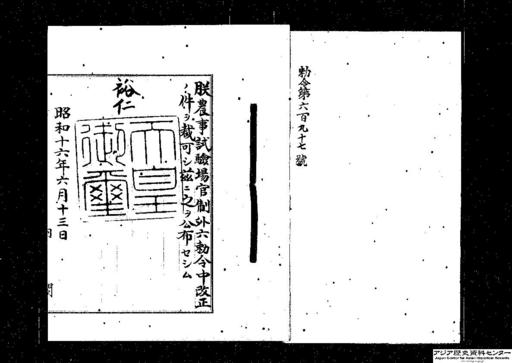 勅令第六百九十七號
朕農事試驗場官制外六勅令中改正
ノ件ヲ裁可シ茲ニ之ヲ公布セシム
裕仁
天皇御璽
昭和十六年六月十三日
内閣
アジア歴史資料センター
Japan Center for Asian Historical Records